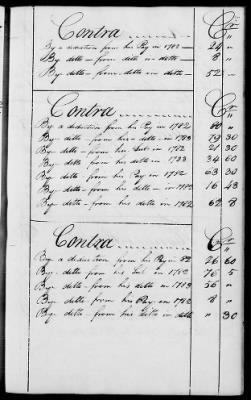 Contra Cr
By a deduction from his Pay in 1782 24 "
By detto - from detto in detto 8 "
By detto - from detto in detto 52 -
Contra Cr
By a deduction from his Pay in 1782 80 "
By detto - from his detto - in 1783 79 30
By detto - from his Sub in 1782 21 30
By detto - from his detto in 1783 34 60
By detto - from his Pay in 1782 63 30
By detto - from his detto in 1782 16 43
By detto - from his detto in 1782 62 8
Contra Cr
By a deduction from his Pay in 82 26 60
By detto from his Sub in 1782 76 5
By detto - from his detto in 1783 56 "
By detto from his Pay in 1782 8 "
By detto from his Detto in detto " 30